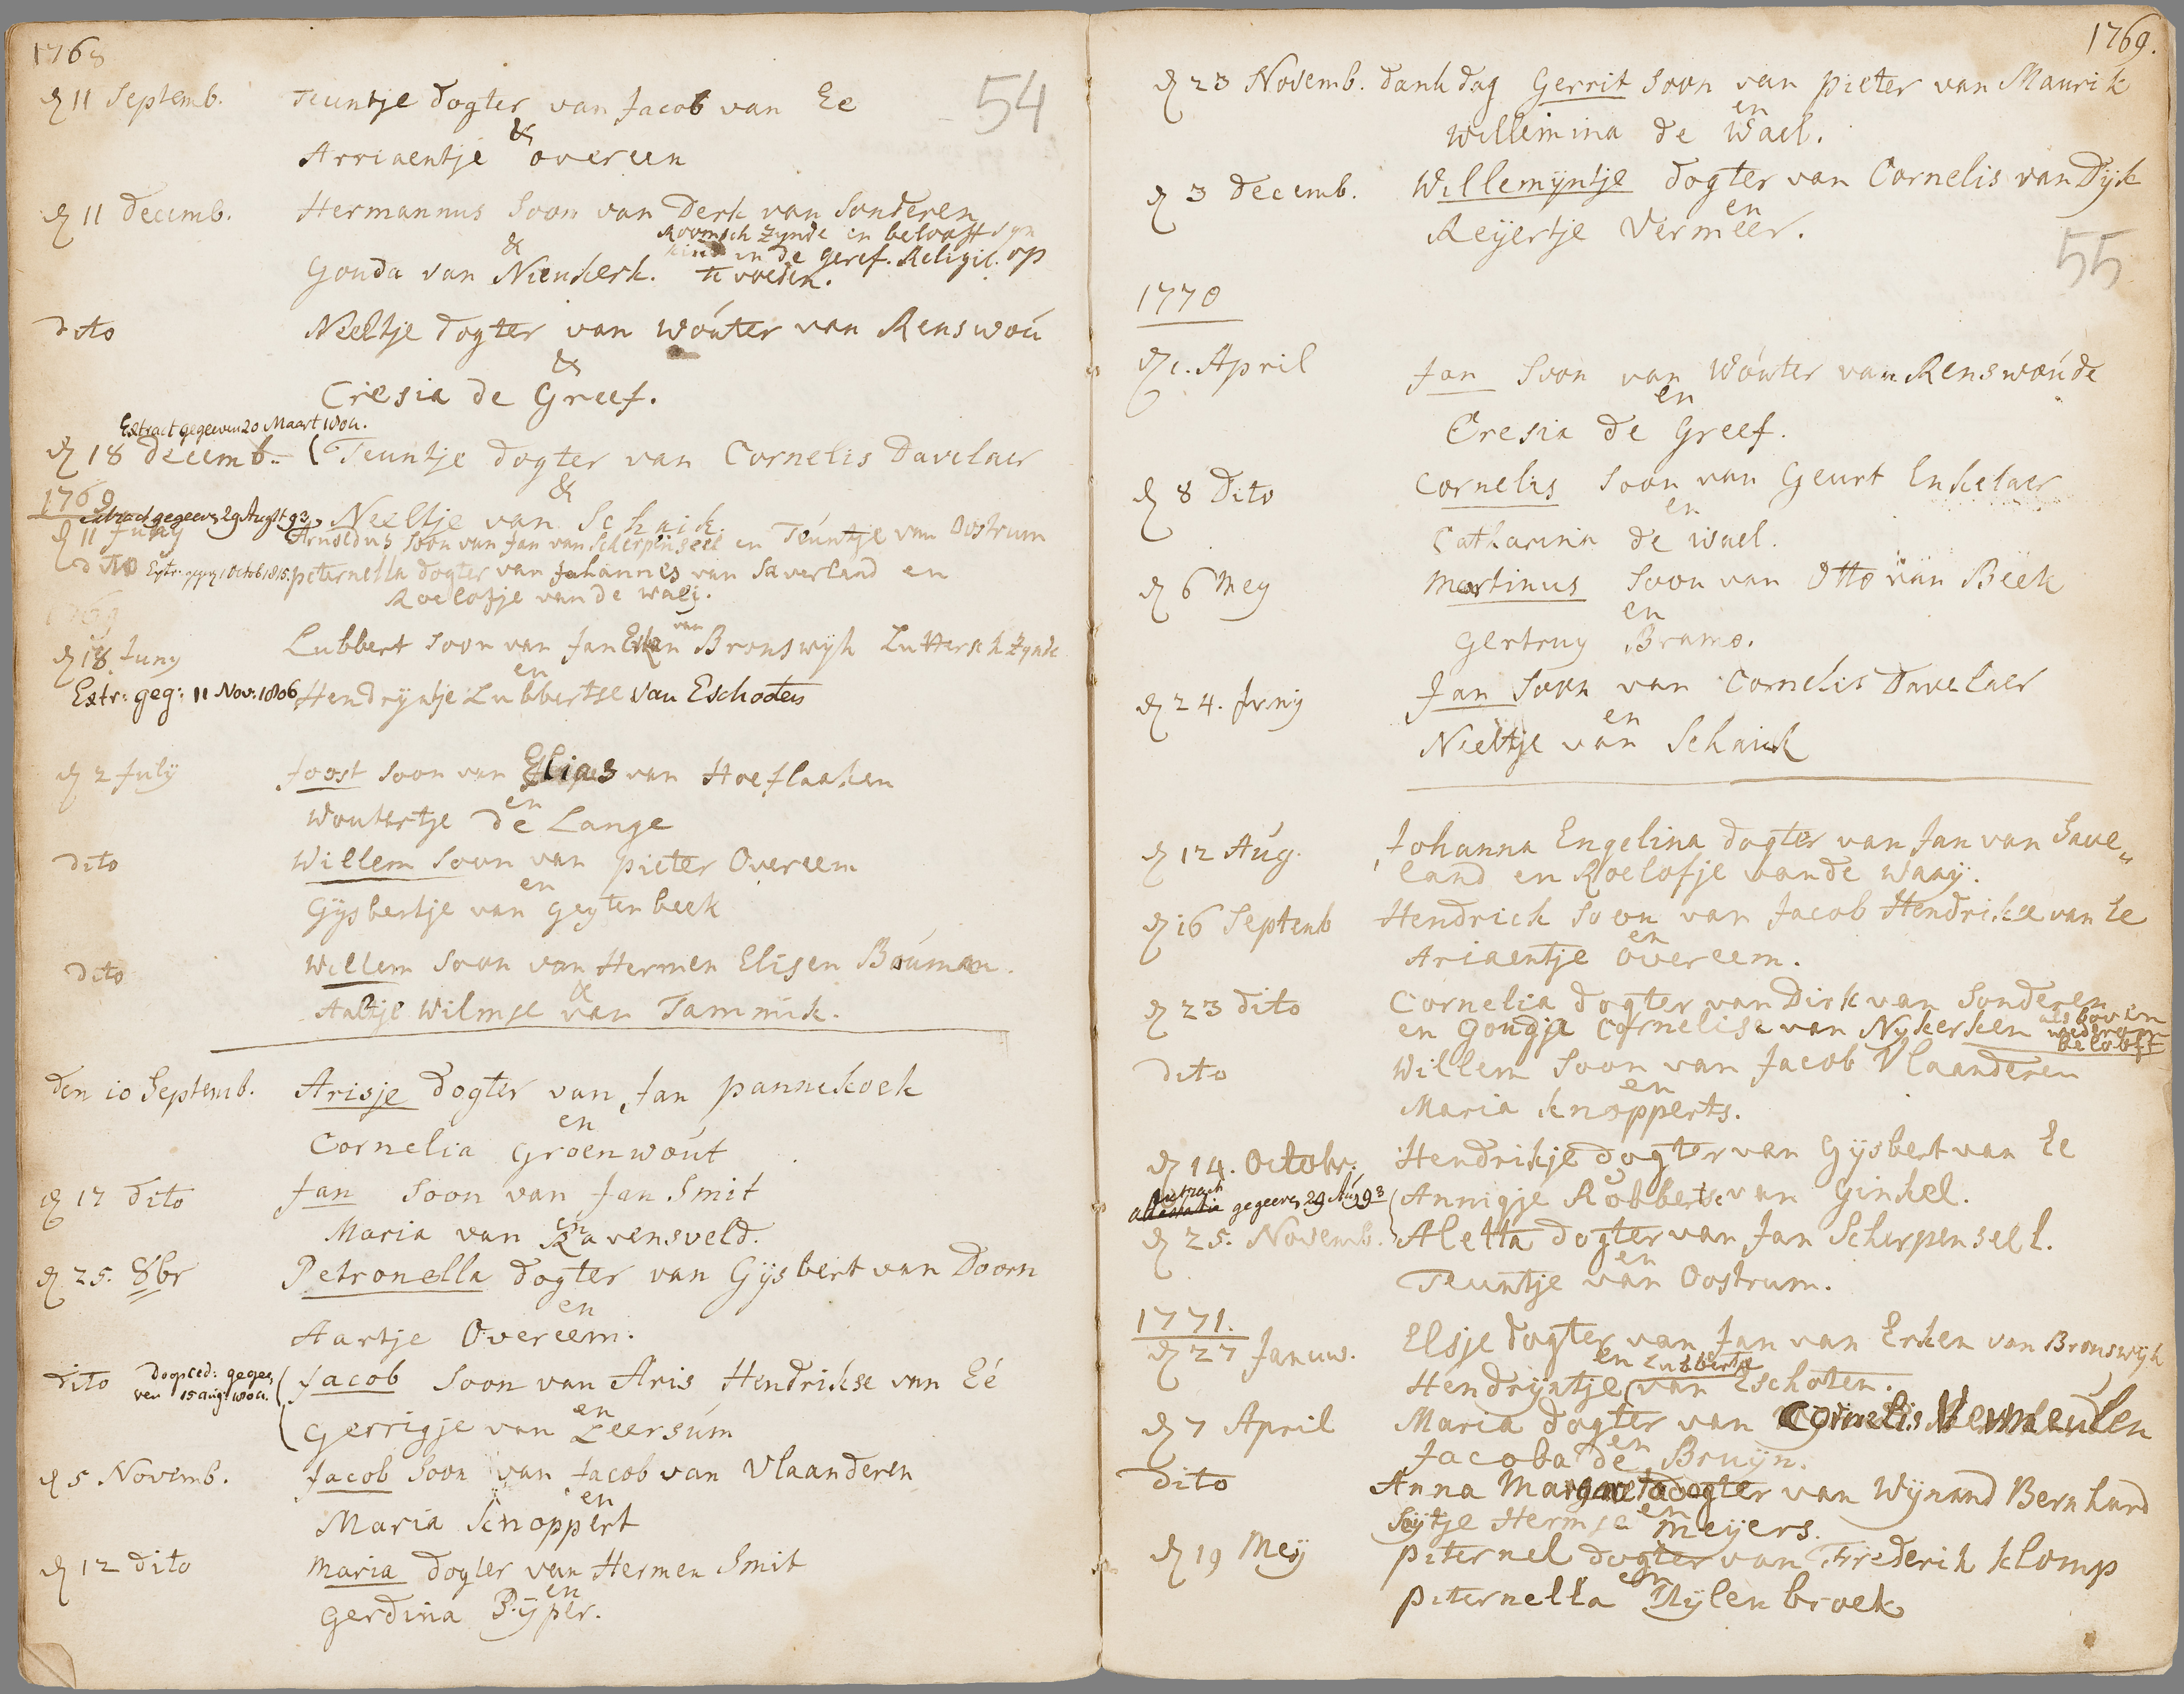 1768
54
d 11 Septemb. Teuntje dogter van Jacob van Ee
&
Arriaentje overeen
d 11 decemb. Hermannus Soon van Derk van Sonderen
Roomsch zynde en belooft syn
& kind in de geref. Religie. op
Gonda van Nieukerk. te voeden.
dito Neeltje dogter van Wouter van Renswou
&
Cresia de Greef.
Extract gegeven 20 Maart 1804.
d 18 decemb. Teuntje dogter van Cornelis Davelaer
&
1769
Extract gegeven 29 Augst 93 Neeltje van Schaick.
d 11 Juny Arnoldus Soon van Jan van Scherpenseel en Teuntje van Oostrum
dito Extr: gegev. 1 Octob 1815. peternella dogter van Johannes van Saverland en
Roelofje van de waeij.
1769
van
d 18 Juny Lubbert Soon van Jan Erken Bronswyk Luthersch zynde
en
Extr: geg: 11 Nov: 1806 Hendryntje Lubbertse van Eschoten
d 2 July Joost Soon van Elias van Hoeflaaken
en
Woutertje de Lange
dito Willem Soon van pieter Overeem
en
Gysbertje van geytenbeek
dito Willem Soon van Hermen Elisen Bouman.
&
Aaltje Wilmse van Tammik.
den 10 Septemb. Arisje dogter van Jan pannekoek
en
Cornelia Groenwout
d 17 dito Jan Soon van Jan Smit
en
Maria van Ravensveld.
d 25. 8br Petronella dogter van Gysbert van Doorn
en
Aartje Overeem.
dito Doopced: gege,
ven 15 aug: 1804. Jacob Soon van Aris Hendrikse van Eé
en
Gerrigje van Leersum
d 5 Novemb. Jacob Soon van Jacob van Vlaanderen
en
Maria Knoppert
d 12 dito Maria dogter van Hermen Smit
en
Gerdina Pijper.
1769.
d 23 Novemb. dank dag Gerrit Soon van pieter van Maurik
en
Willemina de Wael.
d 3 decemb. Willemyntje dogter van Cornelis van Dyk
en
Reyertje Vermeer.
55
1770
d 1. April Jan Soon van Wouter van Renswoude
en
Cresia de Greef.
d 8 Dito Cornelis Soon van Geurt Enkelaer
en
Catharina de Wael.
d 6 Mey Martinus Soon van Otto van Beek
en
Gertruy Brams.
d 24. Juny Jan Soon van Cornelis Davelaer
en
Neeltje van Schaick
d 12 Aug. Johanna Engelina dogter van Jan van Save„
land en Roelofje vande Waay.
d 16 Septemb Hendrick Soon van Jacob Hendrikse van Ee
en
Ariaentje Overeem.
d 23 dito Cornelia dogter van Dirk van Sonderen
en Goudje Cornelisse van Nykerken als boven
wederom
belooft
dito Willem Soon van Jacob Vlaanderen
en
Maria Knopperts.
d 14. Octobr. Hendrikje dogter van Gysbert van Ee
Extract
attestatie gegeven 29 Aug 93 Annigje Robbertse van Ginkel.
d 25. Novemb. Aletta dogter van Jan Scherpenseel.
en
Teuntje van Oostrum.
1771.
d 27 Januw. Elsje dogter van Jan van Erken van Bronswyk
en Lubbertse
Hendryntje van Eschoten.
d 7 April Maria dogter van Cornelis Vermeulen
en
Jacoba de Bruyn.
dito Anna Margareta dogter van Wynand Bernhard
en
Sytje Hermse Meyers.
d 19 Mey Peternel dogter van Frederik Klomp
en
Peternella Nylenbroek